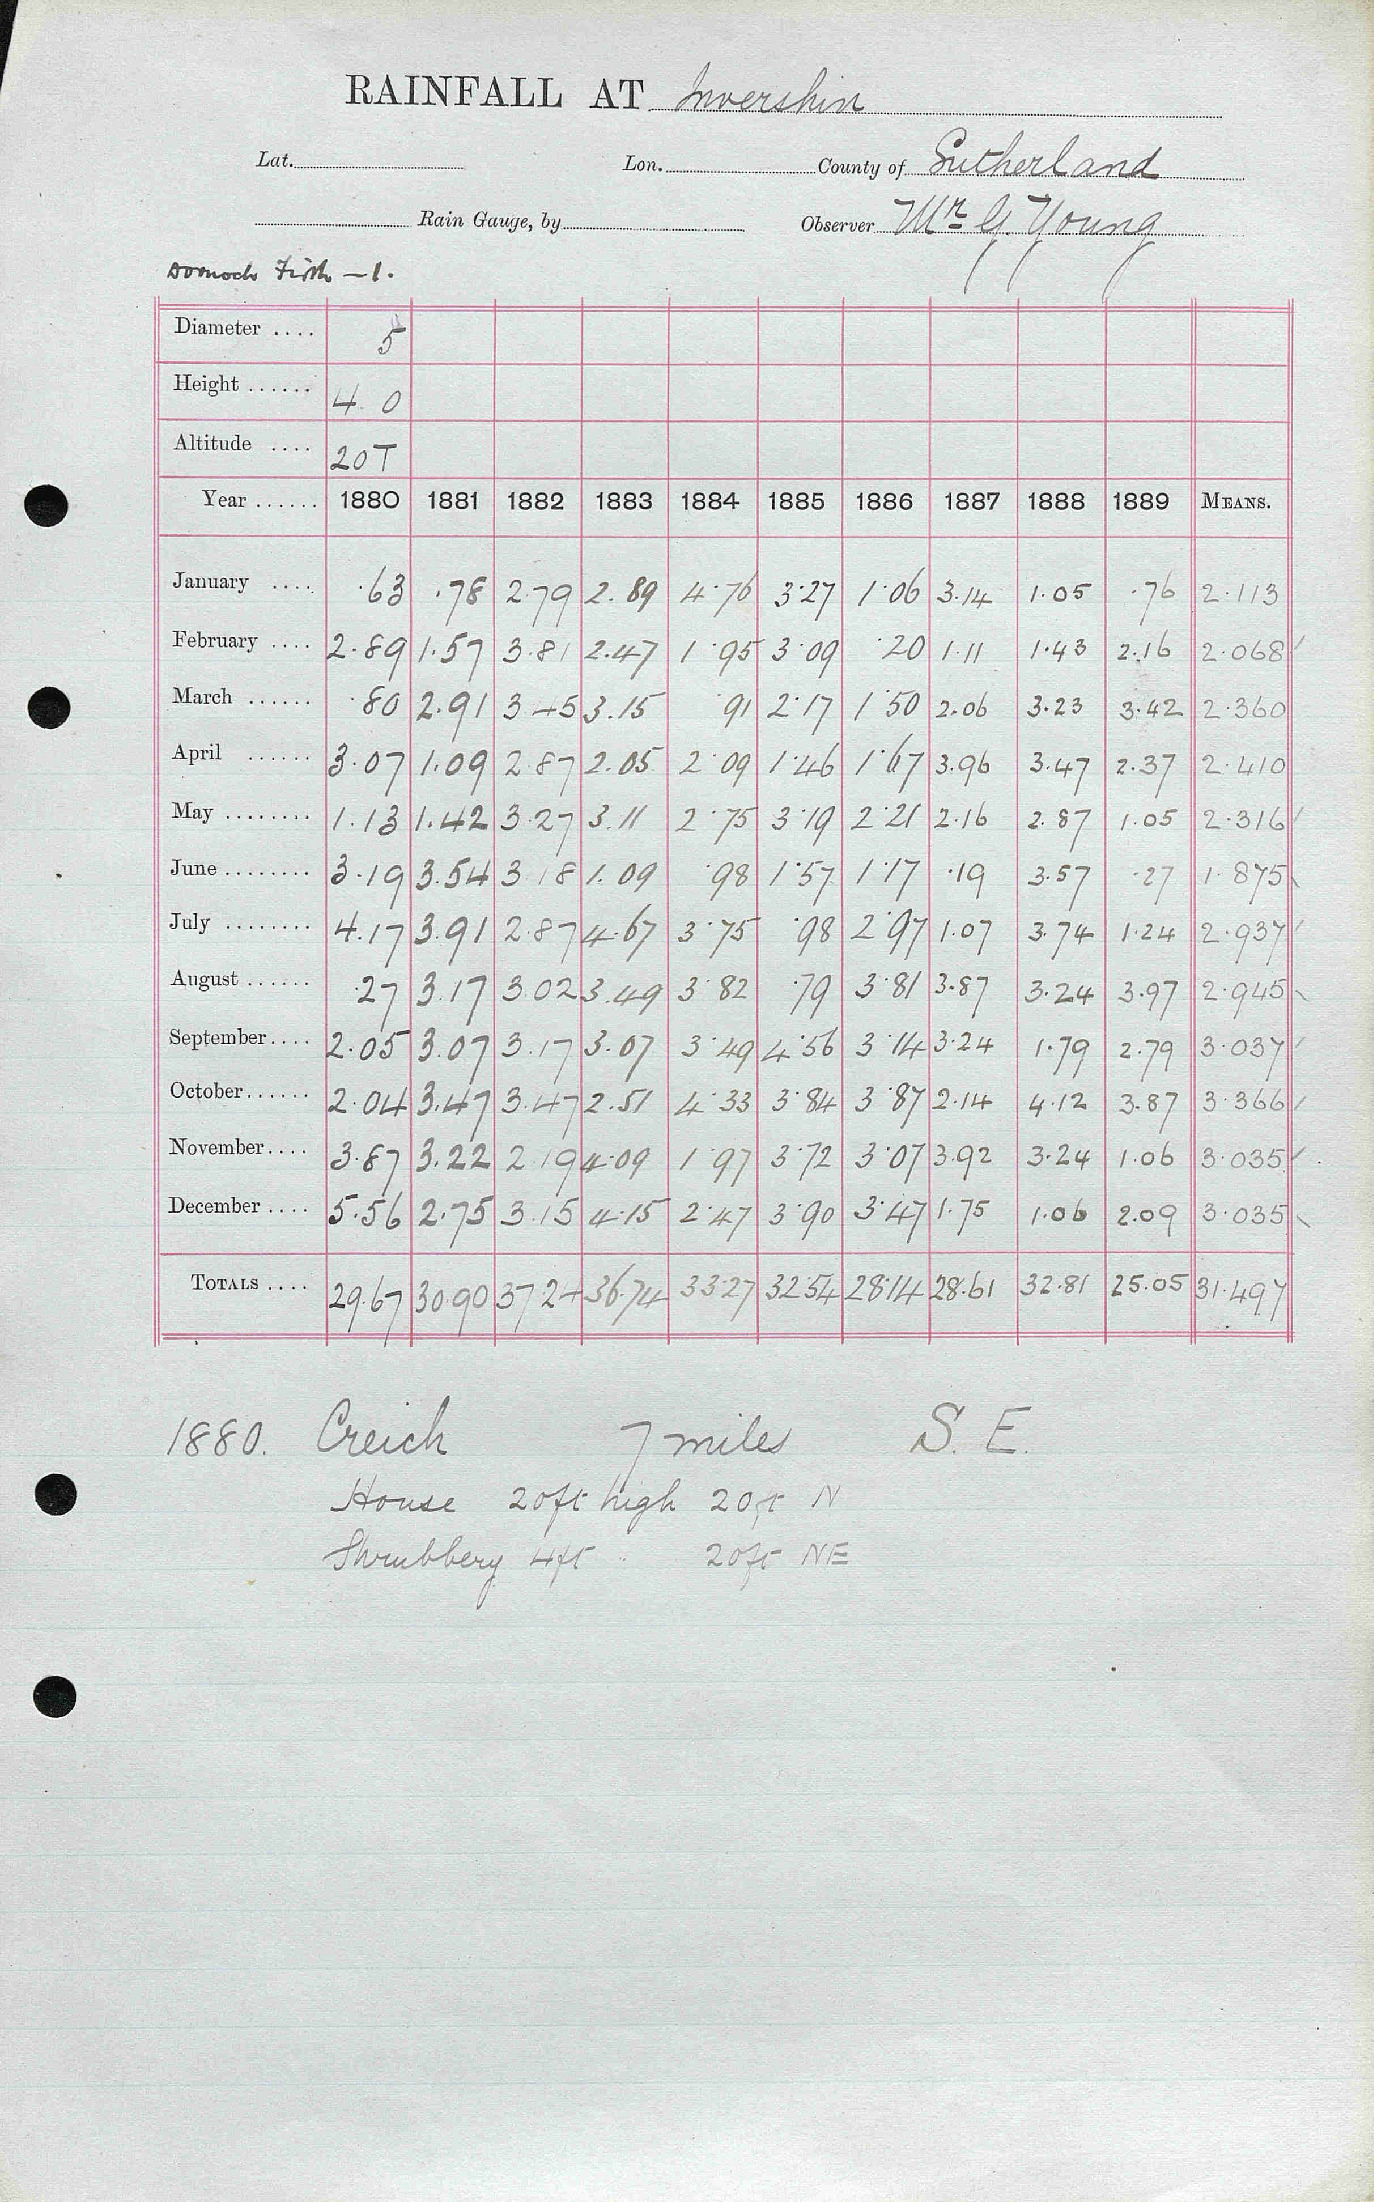 RAINFALL AT Invershin
Lat. Lon. County of Sutherland
Rain Gauge, by Observer Mr G. Young
Dornoch Firth – 1.
Diameter .... 5
Height ...... 4 0
Altitude .... 20 T
Year ...... 1880 1881 1882 1883 1884 1885 1886 1887 1888 1889 MEANS.
January .... ·63 ·78 2·79 2·89 4·76 3·27 1·06 3·14 1·05 ·76 2·113
February .... 2·89 1·57 3·81 2·47 1·95 3·09 ·20 1·11 1·43 2·16 2·068
March ...... ·80 2·91 3·45 3·15 91 2·17 1·50 2·06 3·23 3·42 2·360
April ...... 3·07 1·09 2·87 2·05 2·09 1·46 1·67 3·96 3·47 2·37 2·410
May ........ 1·13 1·42 3·27 3·11 2·75 3·19 2·21 2·16 2·87 1·05 2·316
June ........ 3·19 3·54 3·18 1·09 ·98 1·57 1·17 ·19 3·57 ·27 1·875
July ........ 4·17 3·91 2·87 4·67 3·75 ·98 2·97 1·07 3·74 1·24 2·937
August ...... ·27 3·17 3·02 3·49 3·82 ·79 3·81 3·87 3·24 3·97 2·945
September.... 2·05 3·07 3·17 3·07 3·49 4·56 3·14 3·24 1·79 2·79 3·037
October...... 2·04 3·47 3·47 2·51 4·33 3·84 3·87 2·14 4·12 3·87 3·366
November.... 3·87 3·22 2·19 4·09 1·97 3·72 3·07 3·92 3·24 1·06 3·035
December .... 5·56 2·75 3·15 4·15 2·47 3·90 3·47 1·75 1·06 2·09 3·035
TOTALS .... 29·67 30·90 37·24 36·74 33·27 32·54 28·14 28·61 32·81 25·05 31·497
1880. Creich 7 miles S. E.
House 20ft high 20ft N
Shrubbery 4ft · 20ft NE